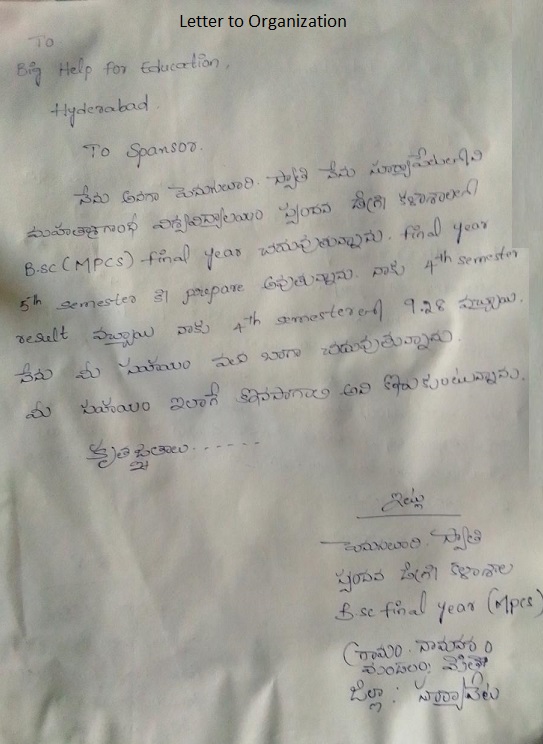 Letter to Organization
To
Big Help for Education,
Hyderabad.
To Spansor.
నేను అనగా పెనుగులూరి. స్వాతి నేను సూర్యాపేటలోని
మహాత్మాగాంధీ విశ్వవిద్యాలయం స్పందన డిగ్రీ కళాశాలలో
B.sc (MPCS) final year చదువుతున్నాను. final year
5th semester కి prepare అవుతున్నాను. నాకు 4th semester
result వచ్చాయి నాకు 4th semester లో 9.28 వచ్చాయి.
నేను మీ సహాయం వలన బాగా చదువుతున్నాను.
మీ సహాయం ఇలాగే కొనసాగాలి అని కోరుకుంటున్నాను.
కృతజ్ఞతలు......
ఇట్లు
స్వాతి
స్పందన డిగ్రీ కళాశాల
B.sc final year (MPCS)
గ్రామం.
మండలం:
జిల్లా : సూర్యాపేట